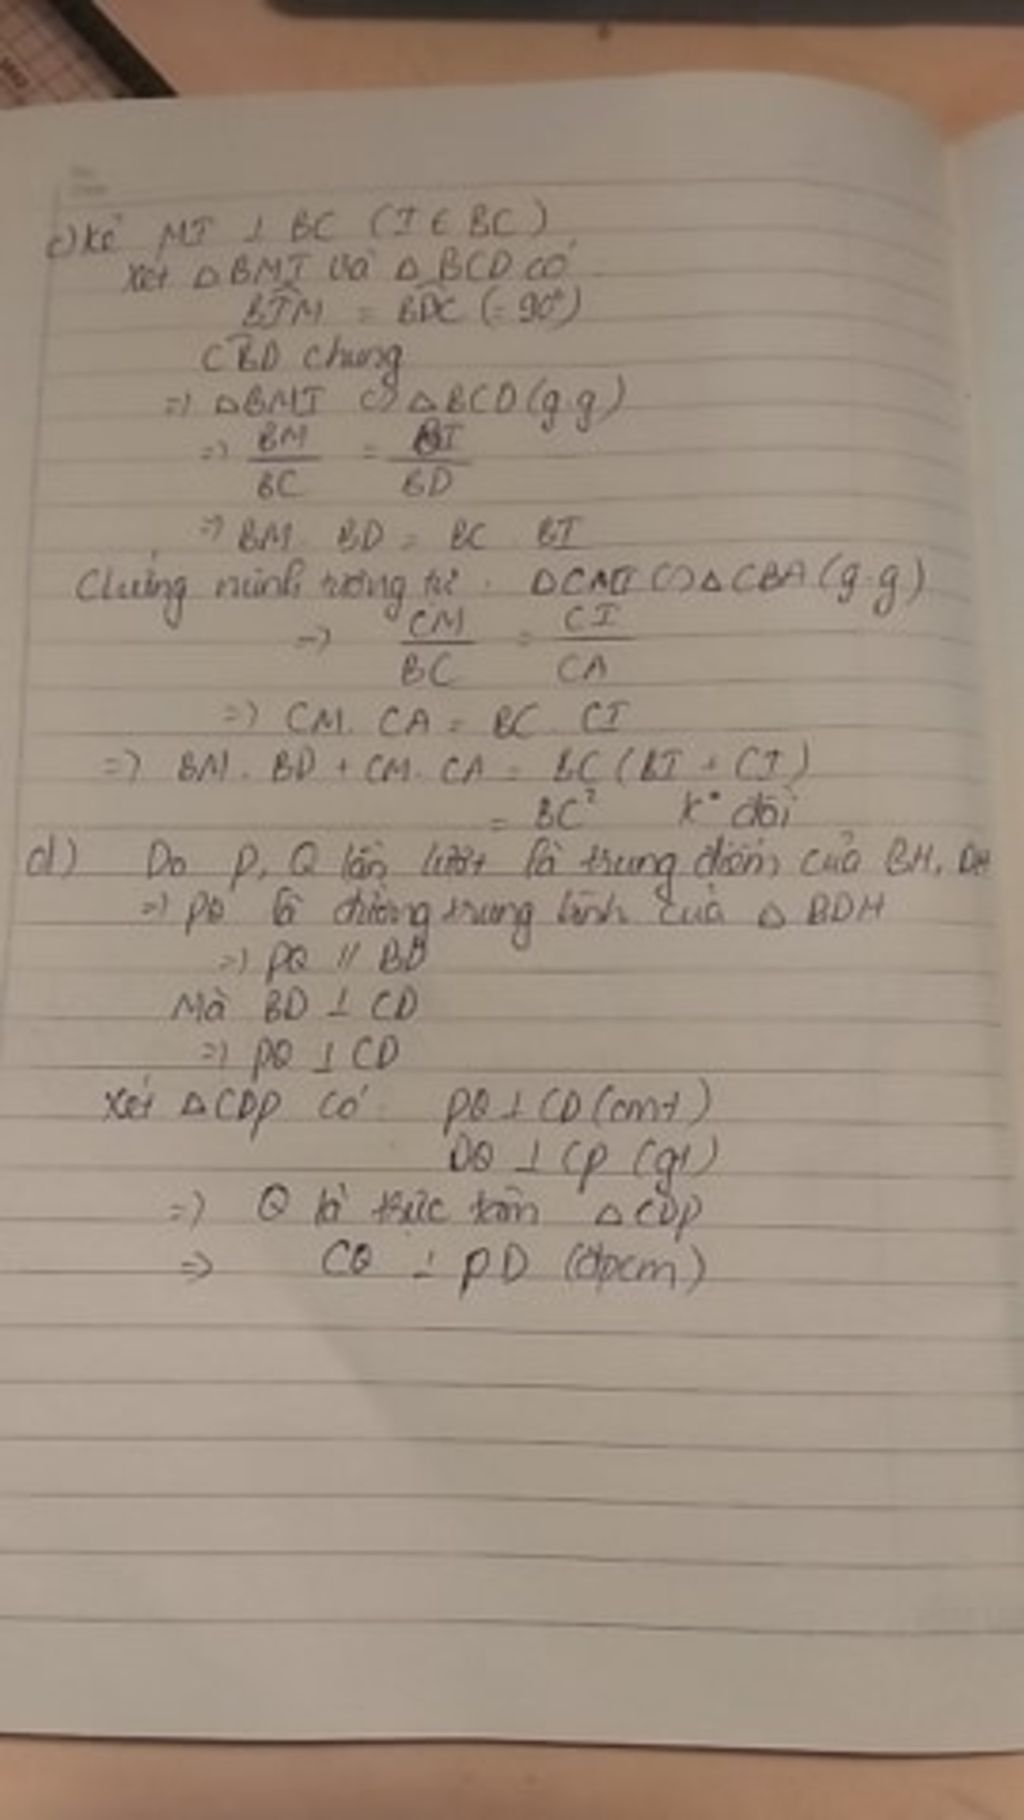 c) Kẻ MI ⊥ BC (I ∈ BC)
Xét △BMI và △BCD có
BIM = BDC (= 90°)
CBD chung
=> △BMI ∽ △BCD (g.g)
=> BM/BC = BI/BD
=> BM. BD = BC. BI
Chứng minh tương tự. △CMI ∽ △CBA (g.g)
=> CM/BC = CI/CA
=> CM. CA = BC. CI
=> BM. BD + CM. CA = BC (BI + CI)
= BC² K° đổi
d) Do P, Q lần lượt là trung điểm của BH, DH
=> PQ là đường trung bình của △ BDH
=> PQ // BD
Mà BD ⊥ CD
=> PQ ⊥ CD
Xét △CDP có: PQ ⊥ CD (cmt)
DQ ⊥ CP (gt)
=> Q là trực tâm △CDP
=> CQ ⊥ PD (đpcm)